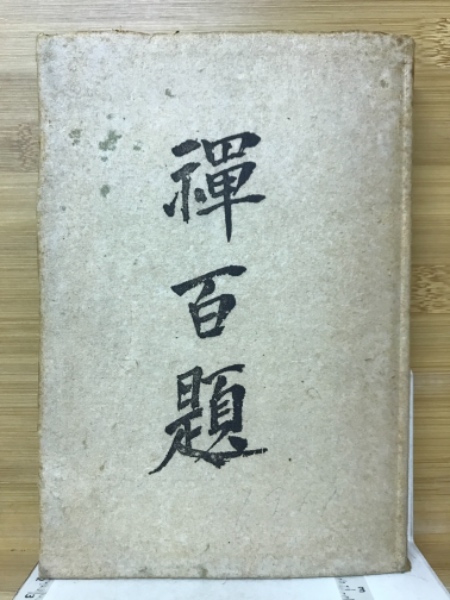 禪百題